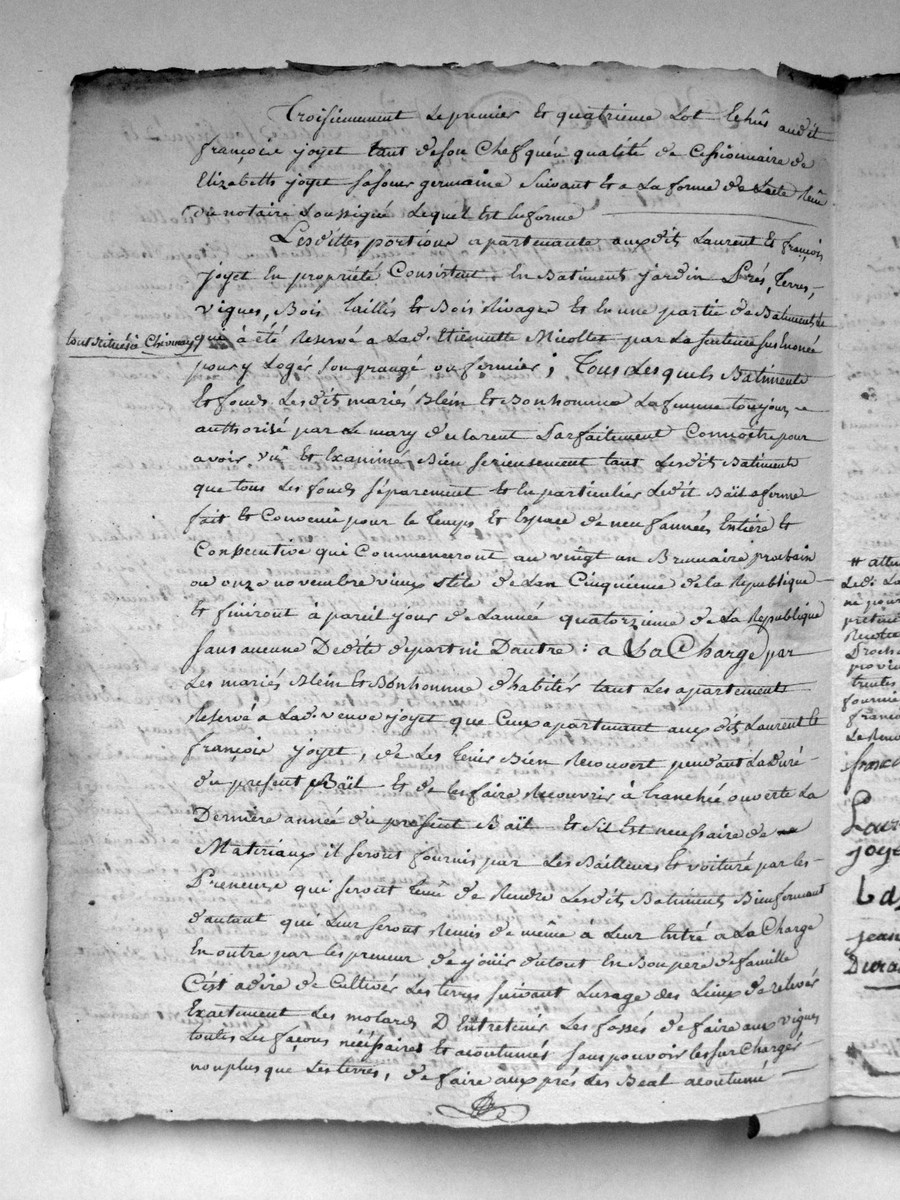 Troisiemement Le premier Et quatrieme Lot Echûs audit
françois joyet tant de son Chef qu'en qualité de Cessionnaire de
Elizabeth joyet sa sœur germaine Suivant Et a La forme de Lacte Reçu
du notaire soussigné Lequel Est En forme
Lesdittes portions apartenante auxdits Laurent Et françois
joyet En propriété Consistent En Batiments jardin Prés, Terres,
vignes, Bois taillis Et Bois Rivages Et En une partie de Batiments
tous situés à Chivnay qui à été Reservé a Lad. Thiemette Nicollet par La sentence sus Enoncé
pour y Loger son grangé ou fermier ; Tous Lesquels Batiments
Et fonds Lesdits mariés Blein Et Bonhomme La femme toujours
authorisé par Le mary déclarent Parfaitement Connoitre pour
avoir vû Et Examiné Bien serieusement tant Lesdits Batiments
que tous Les fonds séparement Et En particulier Ledit Bail a ferme
fait Et Convenû pour le Temps Et Espace de neuf années Entiére Et
Consecutive qui Commenceront au vingt un Brumaire prochain
ou onze novembre vieux stile de Lan Cinquieme de la Republique
Et finiront à pareil jour de Lannée quatorzieme de La Republique
sans aucune Dedite de part ni Dautre : a La Charge par
Les mariés Blein Et Bonhomme d'habiter tant Les apartements
Reservé a Lad. veuve joyet que Ceux apartenant auxdits Laurent Et
françois joyet, de Les tenir Bien Recouvert pendant La duré
du present Bail Et de les faire Recouvrir à tranchée ouverte La
Derniére année du present Bail Et Sil Est necessaire de
Materiaux il seront fournis par Les Bailleurs Et voituré par les
Preneurs qui seront tenû de Rendre Lesdits Batiments Bien fermant
d'autant qui Leur seront Remis de même à Leur Entré a La Charge
En outre par les preneur de joüir du tout En Bon pere de famille
C'est a dire de Cultiver Les terres suivant Lusage des Lieux de relever
Exactement Les molards D'Entretenir Les fossés de faire aux vignes
toutes Les façons nécessaires Et acoutumés sans pouvoir les sur Charger
non plus que Les terres, de faire aux prés Les Beal acoutumé
# attu
Ledi La
né pour
pretend
francoi
Laur
joye
La
jean
Dura